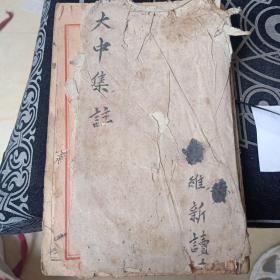 大中集註
維新讀